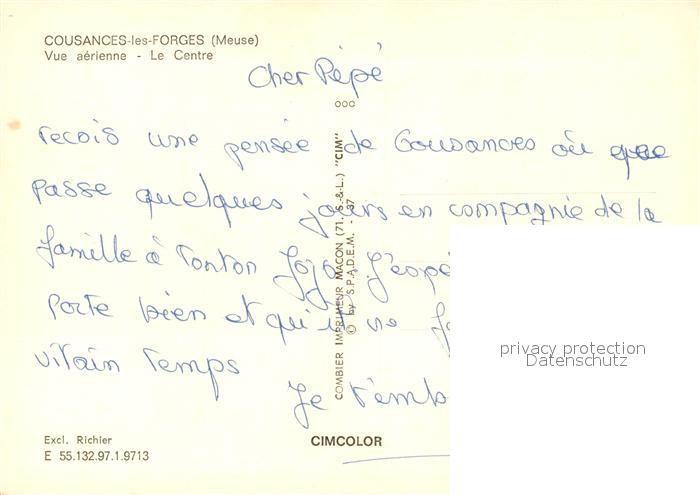 COUSANCES-les-FORGES (Meuse)
Vue aérienne - Le Centre
Cher Pépé
recois une pensée de Cousances où
passe quelques jours en compagnie de la
famille à Tonton J'espé
porte bien et qu'il ne
vilain temps
Je t'emb
ooo
COMBIER IMPRIMEUR MACON (71. S.-&-L.) "CIM"
© by S.P.A.D.E.M. - 37
privacy protection
Datenschutz
Excl. Richier
E 55.132.97.1.9713
CIMCOLOR